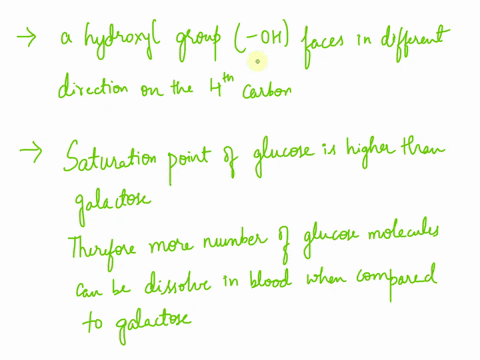 → a hydroxyl group (-OH) faces in different
direction on the 4th carbon
→ Saturation point of glucose is higher than
galactose
Therefore more number of glucose molecules
can be dissolve in blood when compared
to galactose